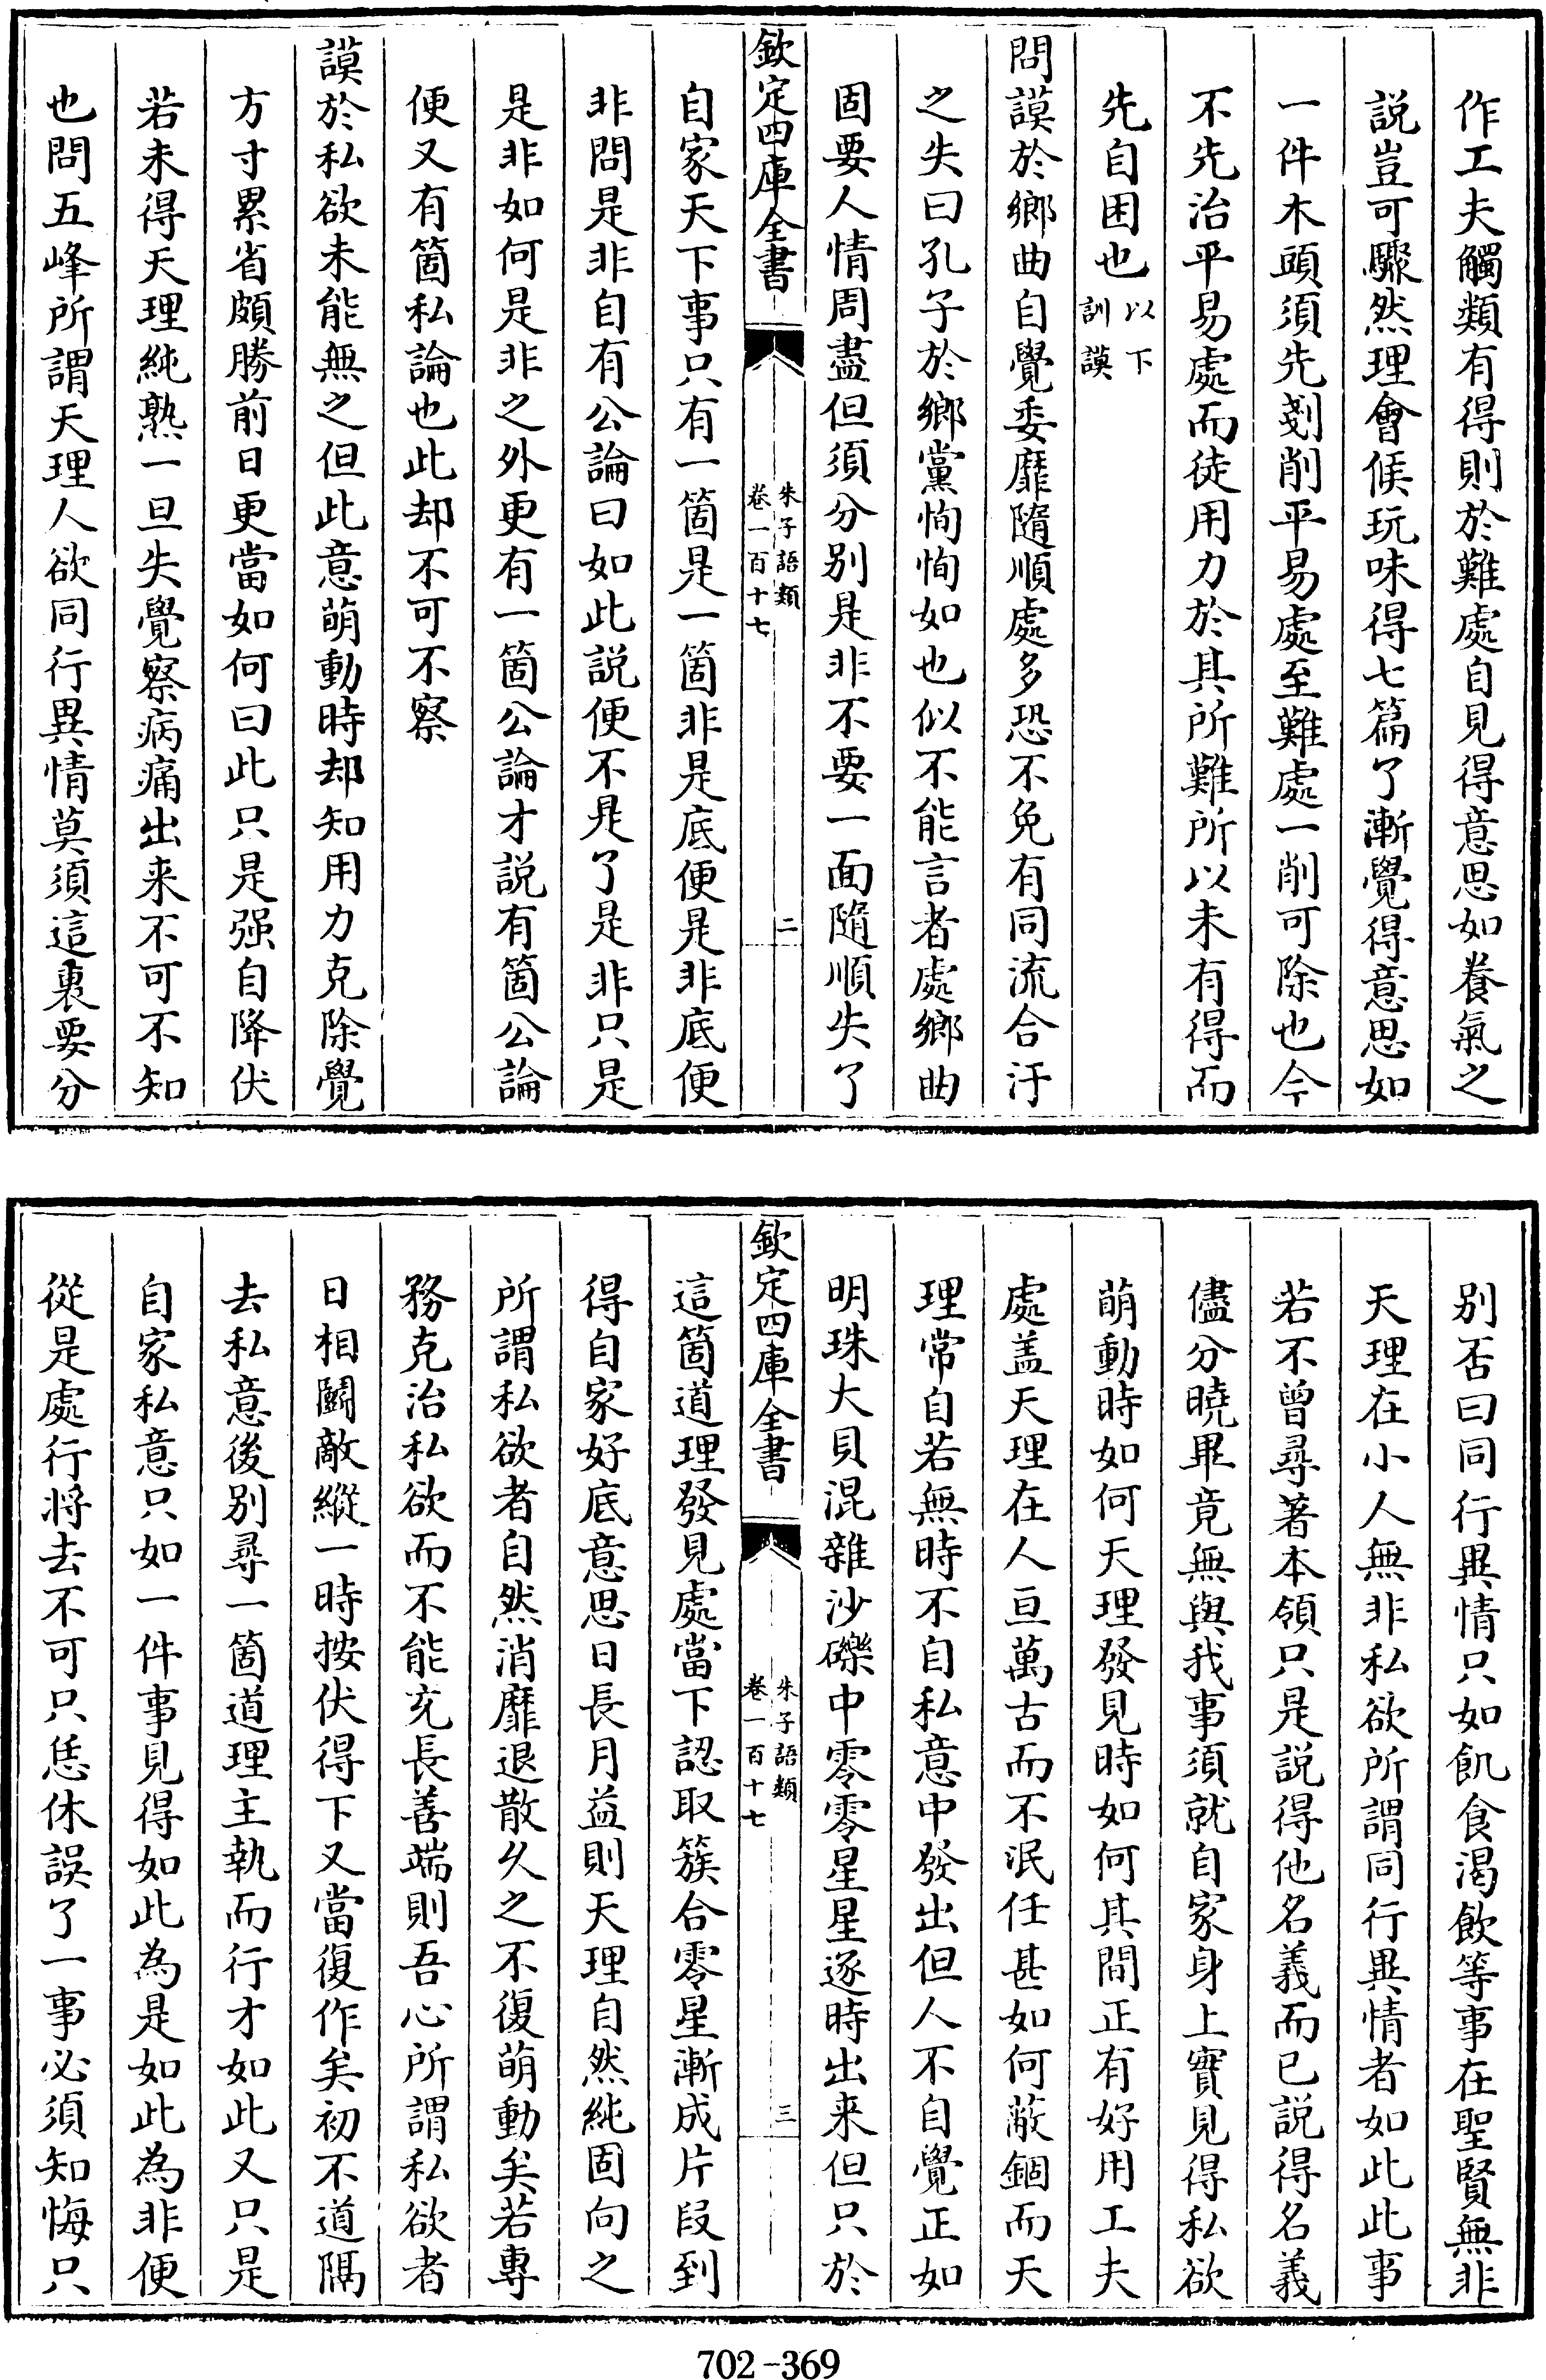 作工夫觸類有得則於難處自見得意思如養氣之
説豈可驟然理會候玩味得七篇了漸覺得意思如
一件木頭須先剗削平易處至難處一削可除也今
不先治平易處而徒用力於其所難所以未有得而
先自困也以下
訓謨
問謨於鄉曲自覺委靡隨順處多恐不免有同流合汙
之失曰孔子於鄉黨恂恂如也似不能言者處鄉曲
固要人情周盡但須分别是非不要一面隨順失了
欽定四庫全書
朱子語類
卷一百十七
二
自家天下事只有一箇是一箇非是底便是非底便
非問是非自有公論曰如此説便不是了是非只是
是非如何是非之外更有一箇公論才説有箇公論
便又有箇私論也此却不可不察
謨於私欲未能無之但此意萌動時却知用力克除覺
方寸累省頗勝前日更當如何曰此只是强自降伏
若未得天理純熟一旦失覺察病痛出来不可不知
也問五峰所謂天理人欲同行異情莫須這裏要分
别否曰同行異情只如飢食渴飲等事在聖賢無非
天理在小人無非私欲所謂同行異情者如此此事
若不曾尋著本領只是説得他名義而已説得名義
儘分曉畢竟無與我事須就自家身上實見得私欲
萌動時如何天理發見時如何其間正有好用工夫
處盖天理在人亘萬古而不泯任甚如何蔽錮而天
理常自若無時不自私意中發出但人不自覺正如
明珠大貝混雜沙礫中零零星星逐時出来但只於
欽定四庫全書
朱子語類
卷一百十七
三
這箇道理發見處當下認取簇合零星漸成片段到
得自家好底意思日長月益則天理自然純固向之
所謂私欲者自然消靡退散久之不復萌動矣若專
務克治私欲而不能充長善端則吾心所謂私欲者
日相鬭敵縱一時按伏得下又當復作矣初不道隔
去私意後别尋一箇道理主執而行才如此又只是
自家私意只如一件事見得如此為是如此為非便
從是處行将去不可只恁休誤了一事必須知悔只
702-369